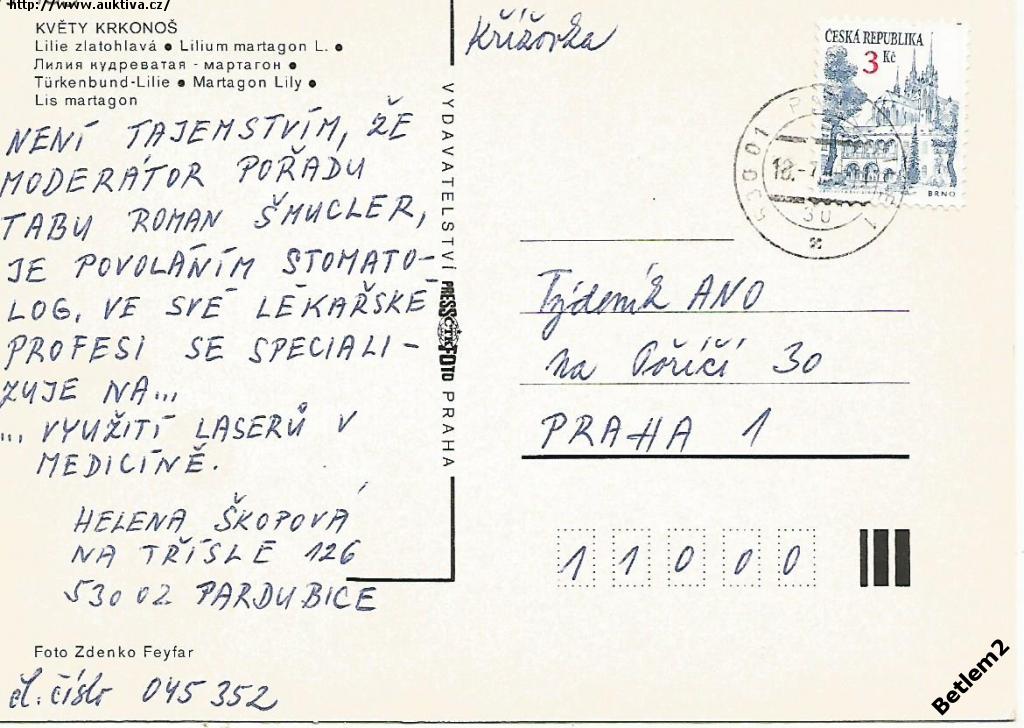 http://www.auktiva.cz/
KVĚTY KRKONOŠ
Lilie zlatohlavá ● Lilium martagon L. ●
Лилия кудреватая - мартагон ●
Türkenbund-Lilie ● Martagon Lily ●
Lis martagon
NENÍ TAJEMSTVÍM, ŽE
MODERÁTOR POŘADU
TABU ROMAN ŠMUCLER,
JE POVOLÁNÍM STOMATO-
LOG. VE SVÉ LÉKAŘSKÉ
PROFESI SE SPECIALI-
ZUJE NA...
... VYUŽITÍ LASERŮ V
MEDICÍNĚ.
HELENA ŠKOPOVÁ
NA TŘÍSLE 126
530 02 PARDUBICE
Foto Zdenko Feyfar
č. číslo 045 352
VYDAVATELSTVÍ PRESSFOTO PRAHA
ČTK
Křížovka
ČESKÁ REPUBLIKA
3 Kč
BRNO
530 01
18.-7.
30
1
Týdeník ANO
na Poříčí 30
PRAHA 1
1 1 0 0 0
Betlem2